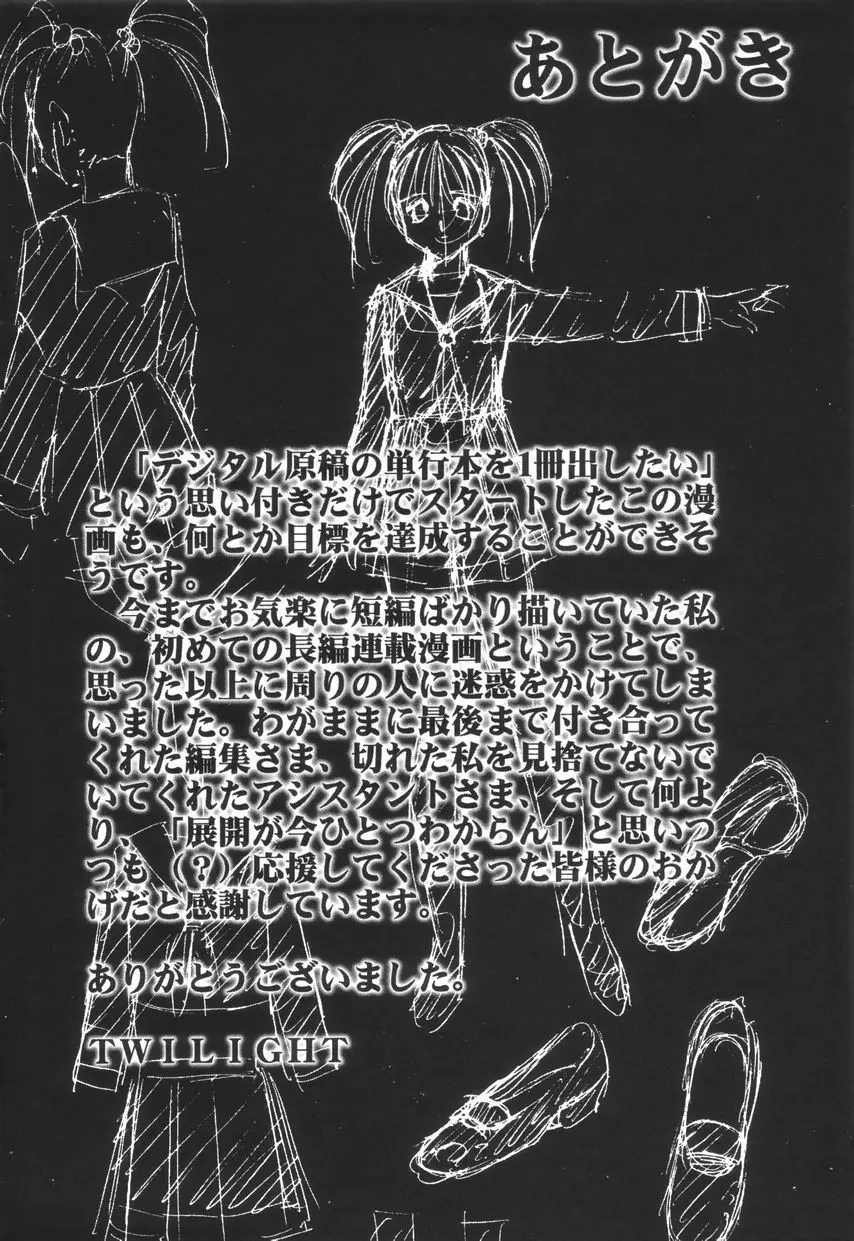 あとがき
「デジタル原稿の単行本を1冊出したい」
という思い付きだけでスタートしたこの漫
画も、何とか目標を達成することができそ
うです。
今までお気楽に短編ばかり描いていた私
の、初めての長編連載漫画ということで、
思った以上に周りの人に迷惑をかけてしま
いました。わがままに最後まで付き合って
くれた編集さま、切れた私を見捨てないで
いてくれたアシスタントさま、そして何よ
り、「展開が今ひとつわからん」と思いつ
つも（？）応援してくださった皆様のおか
げだと感謝しています。
ありがとうございました。
ＴＷＩＬＩＧＨＴ